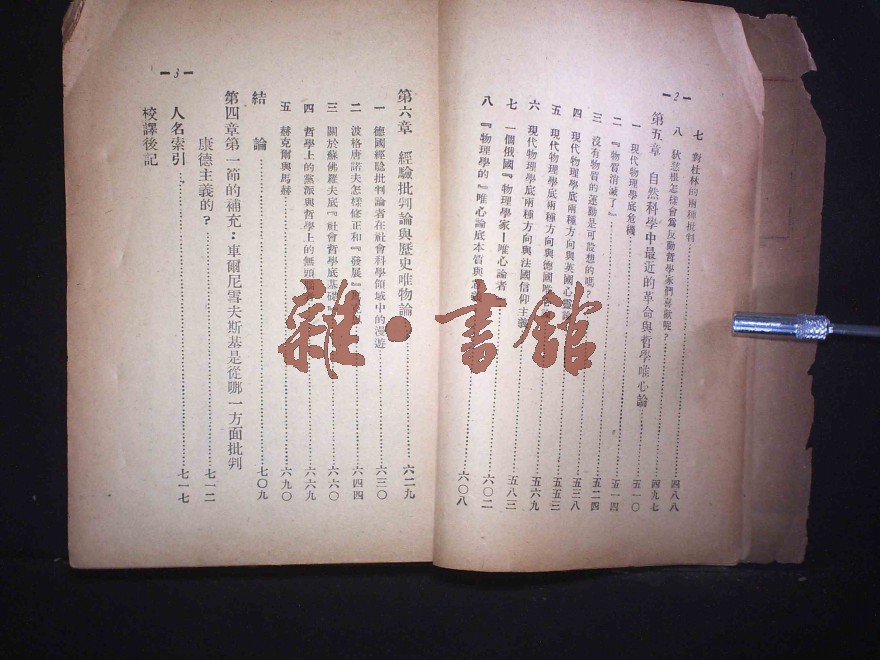 — 2 —
七 對杜林的兩種批判
八 狄慈根怎樣會爲反動哲學家們喜歡呢？ 四八八
第五章 自然科學中最近的革命與哲學唯心論 四九七
一 現代物理學底危機 五一〇
二 『物質消滅了』 五一四
三 沒有物質的運動是可設想的嗎？ 五二四
四 現代物理學底兩種方向與英國心靈 五三八
五 現代物理學底兩種方向與德國唯 五五三
六 現代物理學底兩種方向與法國信仰主義 五六九
七 一個俄國『物理學家—唯心論者』 五八三
八 『物理學的』唯心論底本質與 六〇二
六〇八
第六章 經驗批判論與歷史唯物論 六二九
一 德國經驗批判論者在社會科學領域中的漫遊 六三〇
二 波格唐諾夫怎樣修正和『發展』 六四四
三 關於蘇佛羅夫底『社會哲學底基礎 六六〇
四 哲學上的黨派與哲學上的無頭 六六九
五 赫克爾與馬赫 六九〇
結 論 七〇九
第四章第一節的補充：車爾尼雪夫斯基是從哪一方面批判
康德主義的？ 七一二
人名索引 七一七
校譯後記
— 3 —
雜·書館